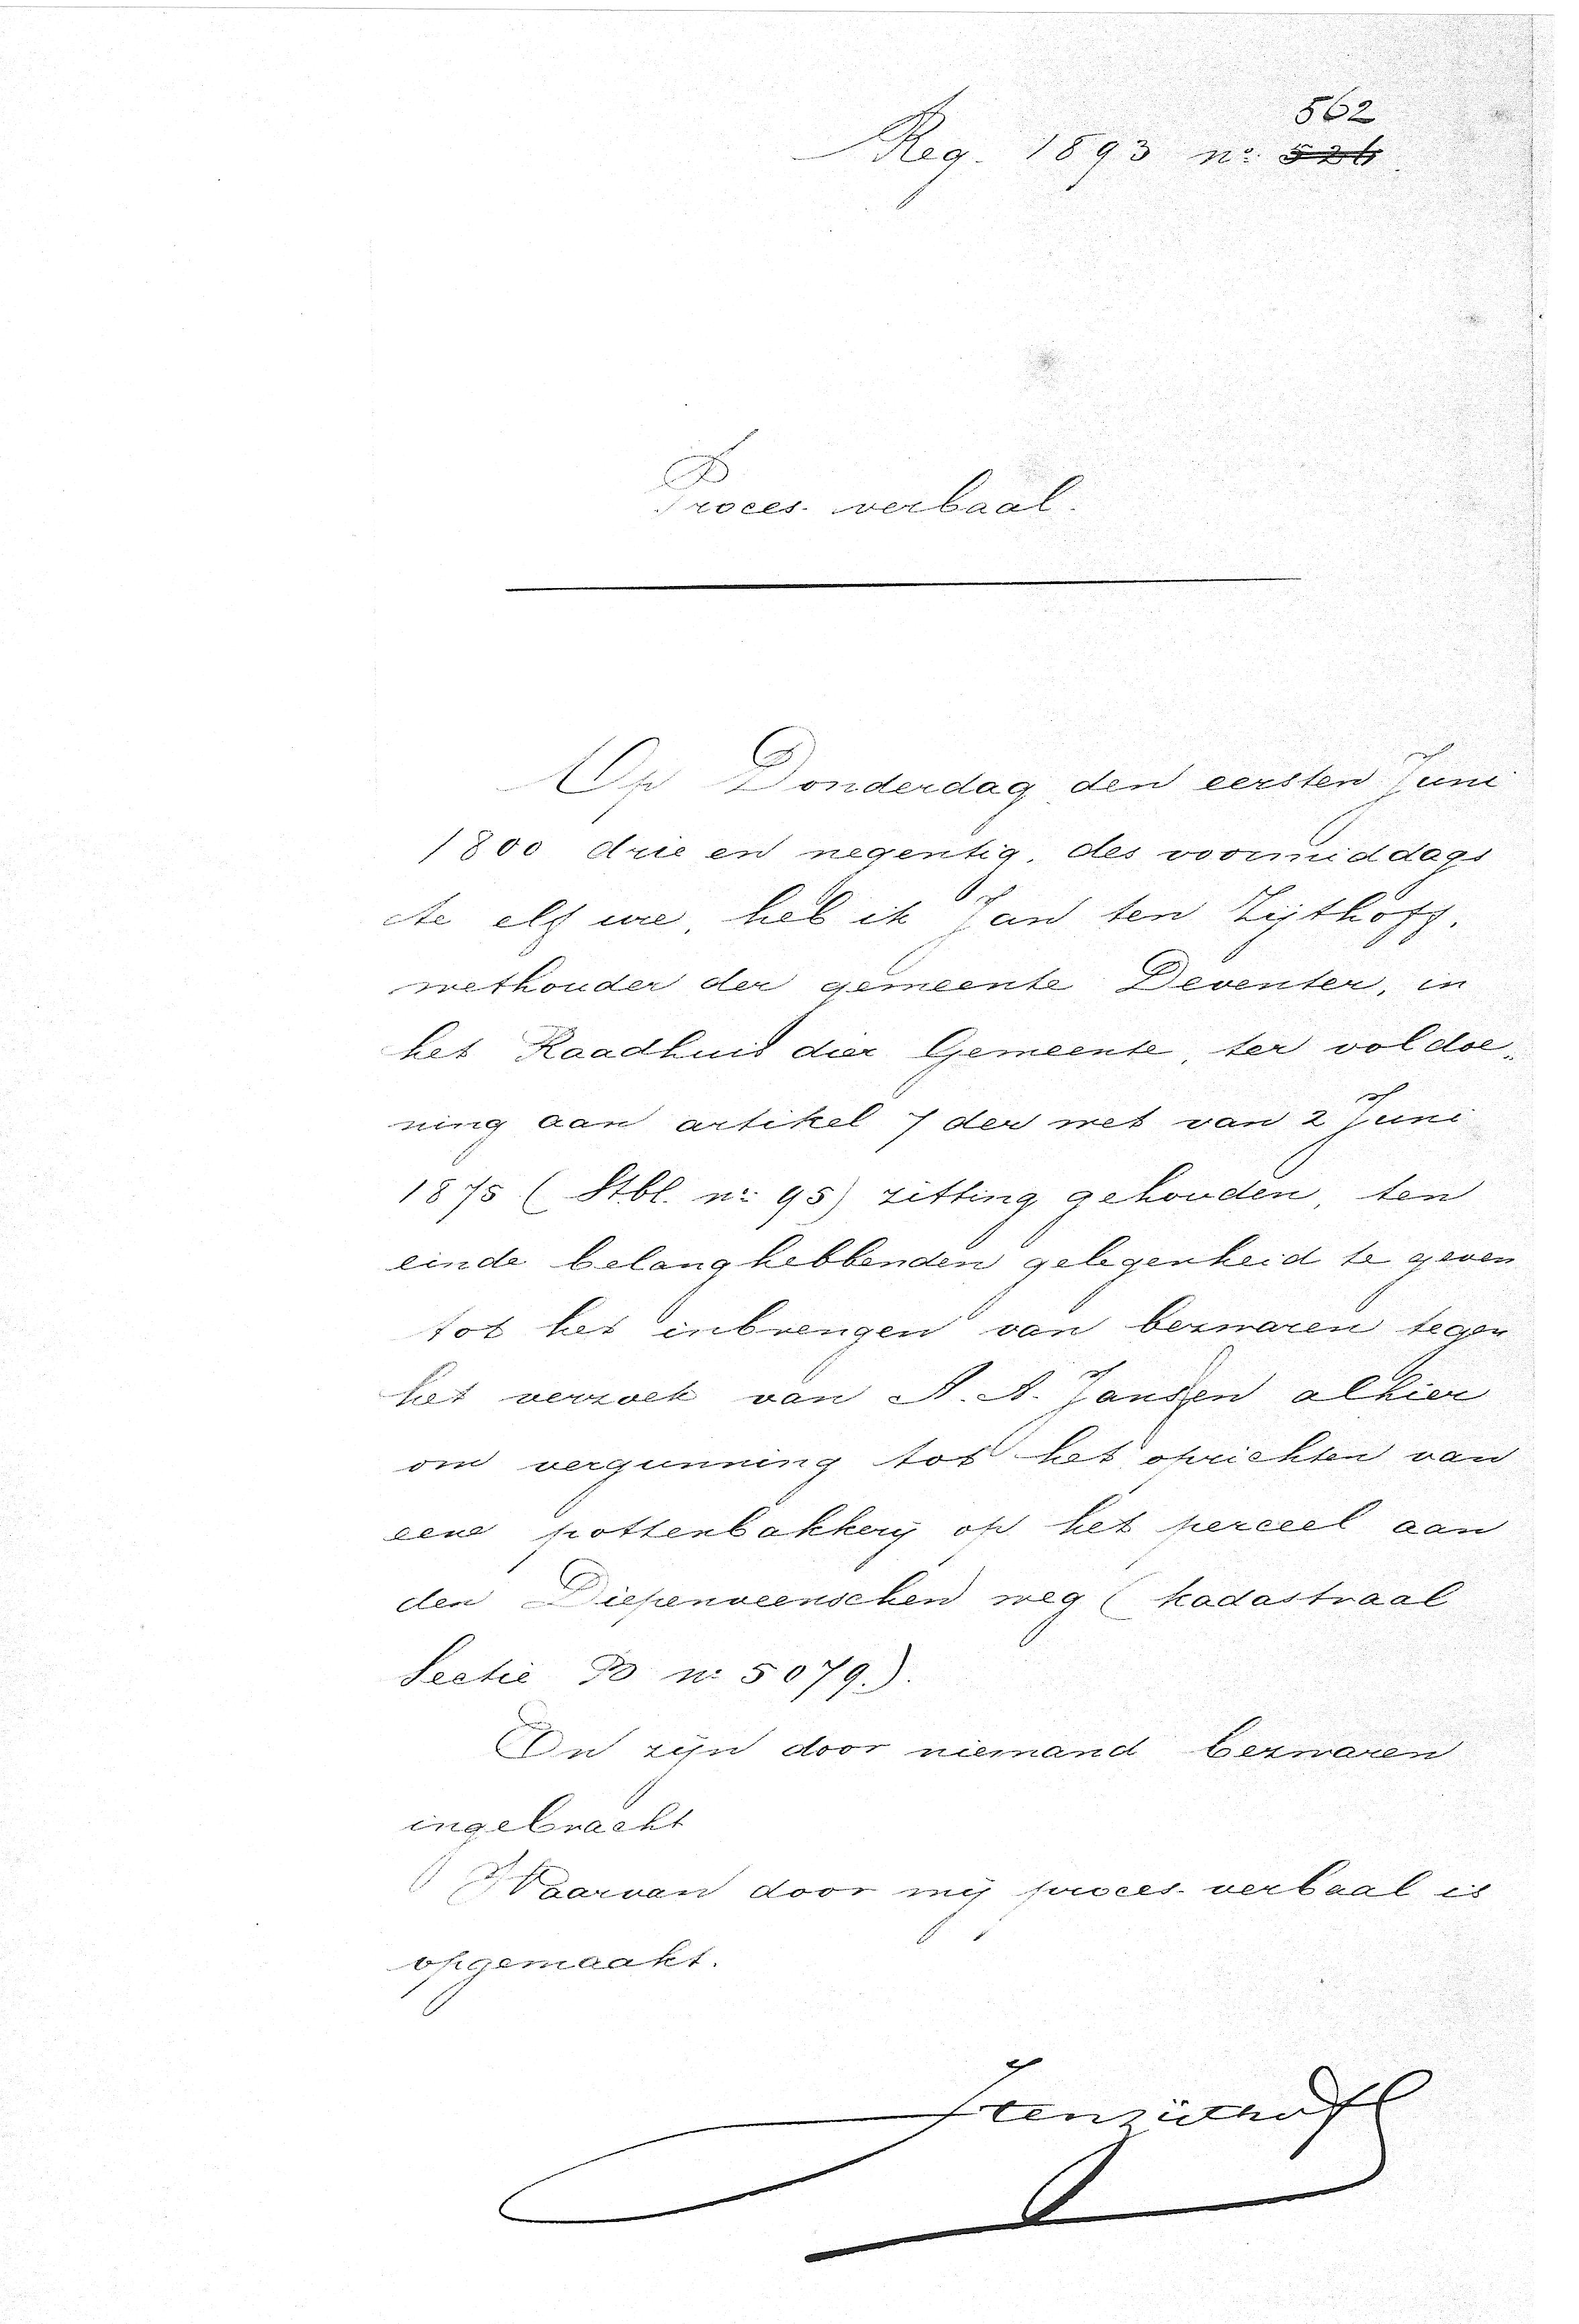 562
Reg. 1893 no. 526.
Proces-verbaal.
Op Donderdag den eersten Juni
1800 drie en negentig, des voormiddags
te elf ure, heb ik Jan ten Zijthoff,
wethouder der gemeente Deventer, in
het Raadhuis dier Gemeente, ter voldoe„
ning aan artikel 7 der wet van 2 Juni
1875 (Stbl. no. 95) zitting gehouden, ten
einde belanghebbenden gelegenheid te geven
tot het inbrengen van bezwaren tegen
het verzoek van A. A. Jansen alhier
om vergunning tot het oprichten van
eene pottenbakkerij op het perceel aan
den Diepenveenschen weg (kadastraal
Sectie B no. 5079.).
En zijn door niemand bezwaren
ingebracht
Waarvan door mij proces-verbaal is
opgemaakt.
JtenZijthoff